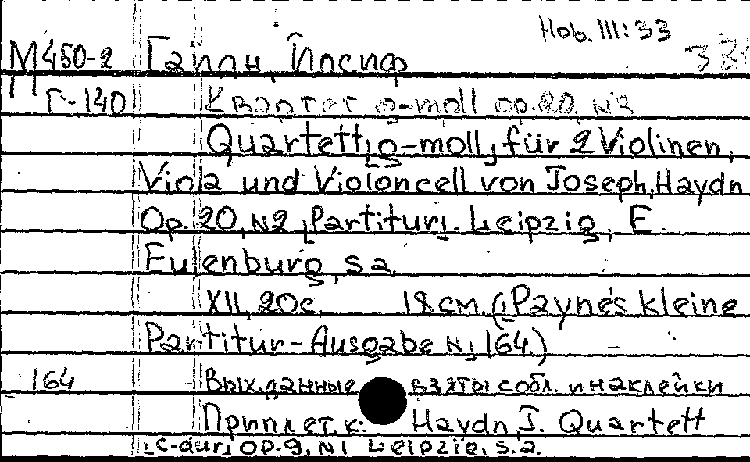 Hob. III:33
М450-2 Гайдн, Йосиф
Г-140 Квартет g-moll op.20, N2
Quartett, g-moll, für 2 Violinen,
Viola und Violoncell von Joseph Haydn
Op. 20, N2 [Partitur]. Leipzig, E.
Eulenburg, s.a.
XII, 20c. 18см. (Payne's kleine
Partitur-Ausgabe N, 164.)
164 Вых.данные взяты собл. и наклейки
Приплет. к: Haydn, J. Quartett
C-dur, Op.9, N1 Leipzig, s.a.